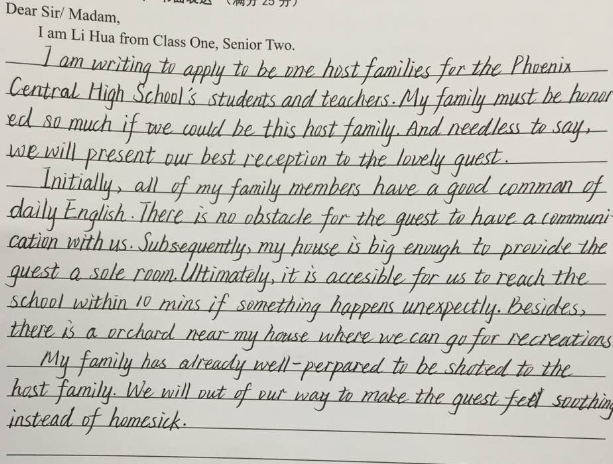 书面表达 (满分 25 分)
Dear Sir/ Madam,
I am Li Hua from Class One, Senior Two.
I am writing to apply to be one host families for the Phoenix
Central High School's students and teachers. My family must be honor
ed so much if we could be this host family. And needless to say,
we will present our best reception to the lovely guest.
Initially, all of my family members have a good comman of
daily English. There is no obstacle for the guest to have a communi-
cation with us. Subsequently, my house is big enough to provide the
guest a sole room. Ultimately, it is accesible for us to reach the
school within 10 mins if something happens unexpectly. Besides,
there is a orchard near my house where we can go for recreations
My family has already well-perpared to be shoted to the
host family. We will out of our way to make the guest feel soothing
instead of homesick.